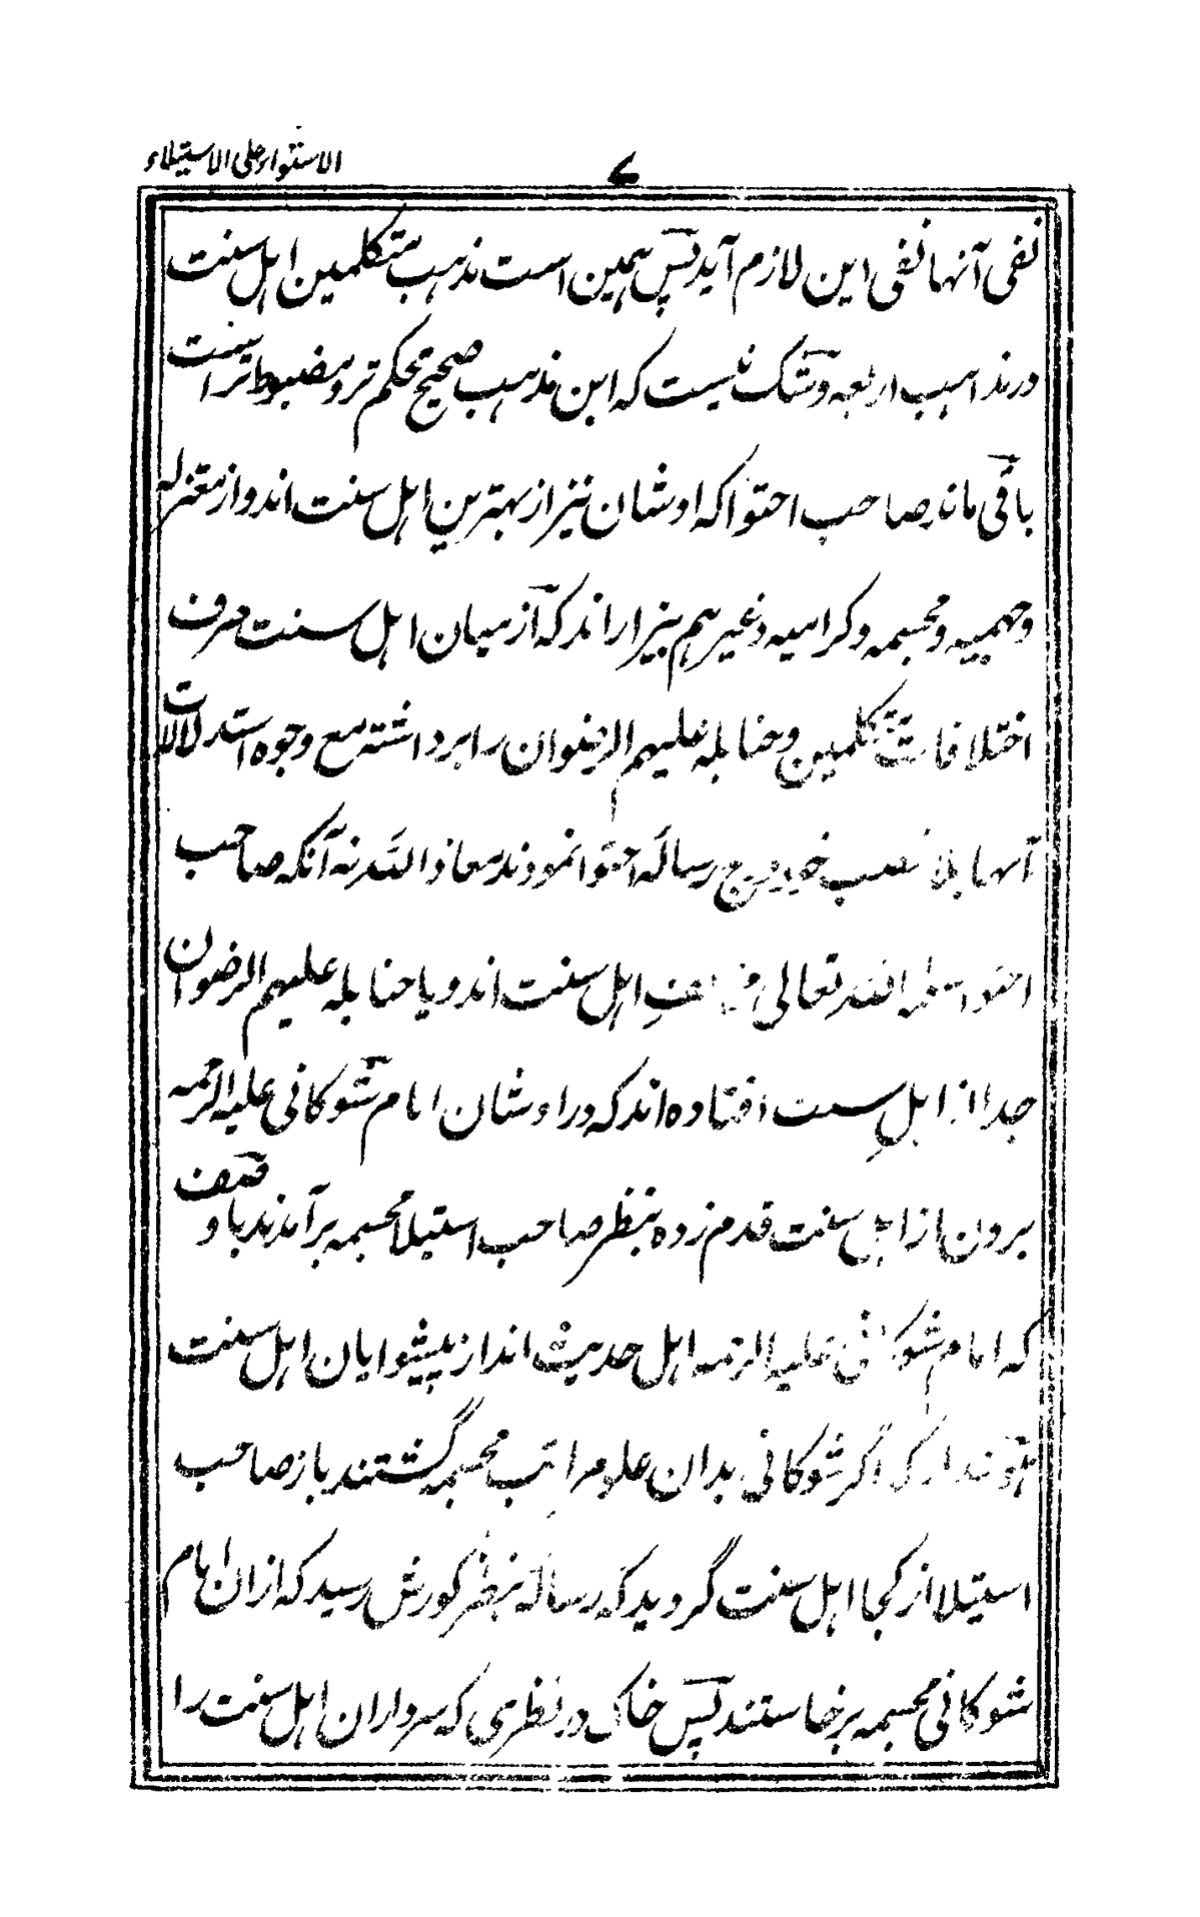 الاستواء علی الاستیلاء
۷
نفی آنها نفی این لازم آید پس همین است مذهب متکلمین اهل سنت
در مذاهب اربعه و شک نیست که این مذهب صحیح محکم تر و مضبوط تر است
باقی ماند صاحب احتوا که اوشان نیز از بهترین اهل سنت اند و از معتزله
و جهمیه و مجسمه و کرامیه و غیرهم بیزار اند که از میان اهل سنت صرف
اختلافات متکلمین و حنابله علیهم الرضوان را برداشته مع وجوه استدلالات
آنها بلا تعصب خود درج رساله احتوا نمودند معاذ الله نه آنکه صاحب
احتوا سلمه الله تعالی مخالف اهل سنت اند و یا حنابله علیهم الرضوان
جدا از اهلِ سنت افتاده اند که در اوشان امام شوکانی علیه الرحمه
برون از اهل سنت قدم زده بنظر صاحب استیلا مجسمه برآمدند باوصف
که امام شوکانی علیه الرحمه اهل حدیث اند از پیشوایان اهل سنت
اگر شوکانی بدان علو مراتب مجسمه گشتند باز صاحب
استیلا از کجا اهل سنت گردید که رساله بنظر کورش رسید که ازان امام
شوکانی مجسمه برخاستند پس خاک در نظری که سرداران اهل سنت را